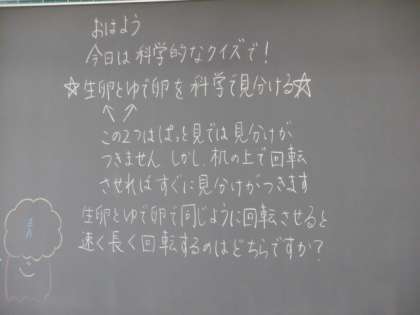 おはよう
今日は科学的なクイズで!
☆生卵とゆで卵を科学で見分ける☆
この2つはぱっと見では見分けが
つきません しかし、机の上で回転
させればすぐに見分けがつきます
生卵とゆで卵で同じように回転させると
速く長く回転するのはどちらですか?